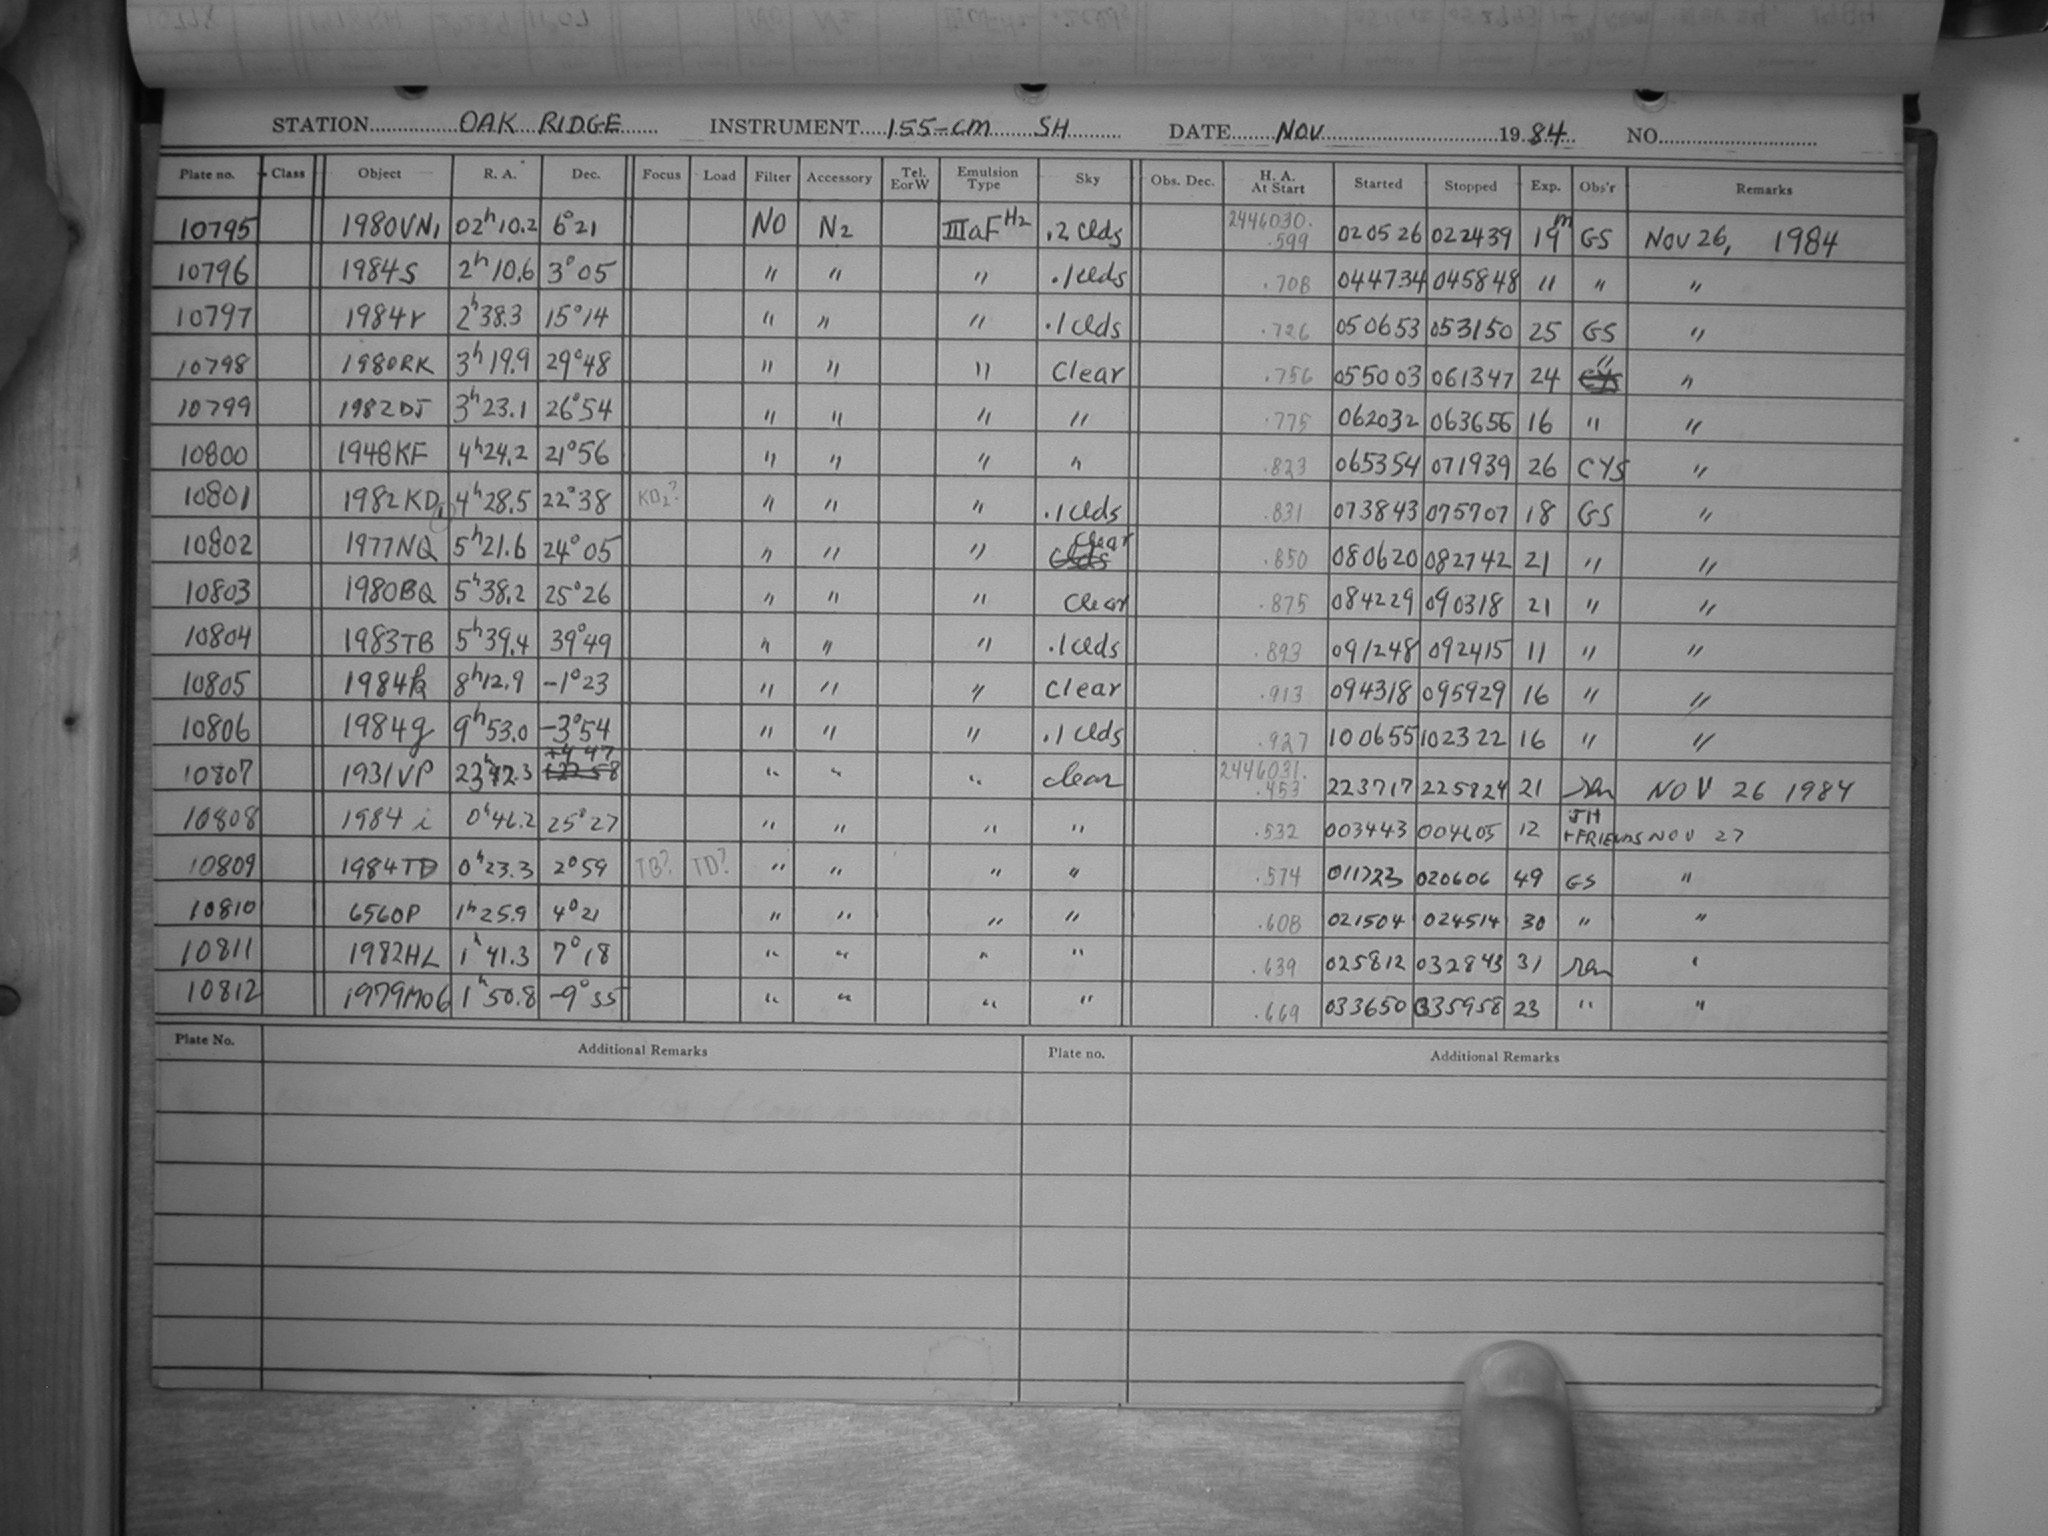 STATION OAK RIDGE INSTRUMENT 155-cm SH DATE NOV 19 84 NO.
Plate no. Class Object R. A. Dec. Focus Load Filter Accessory Tel. E or W Emulsion Type Sky Obs. Dec. H. A. At Start Started Stopped Exp. Obs'r Remarks
10795 1980VN1 02h10.2 6°21 NO N2 IIIaF H2 .2 clds 2446030. .599 020526 022439 19m GS Nov 26, 1984
10796 1984s 2h10.6 3°05 " " " .1 clds .708 044734 045848 11 " "
10797 1984r 2h38.3 15°14 " " " .1 clds .726 050653 053150 25 GS "
10798 1980RK 3h19.9 29°48 " " " Clear .756 055003 061347 24 " "
10799 1982DJ 3h23.1 26°54 " " " " .775 062032 063656 16 " "
10800 1948KF 4h24.2 21°56 " " " " .823 065354 071939 26 CYS "
10801 1982KD1 4h28.5 22°38 KD2? " " " .1 clds .831 073843 075707 18 GS "
10802 1977NQ 5h21.6 24°05 " " " clear .850 080620 082742 21 " "
10803 1980BQ 5h38.2 25°26 " " " Clear .875 084229 090318 21 " "
10804 1983TB 5h39.4 39°49 " " " .1 clds .893 091248 092415 11 " "
10805 1984k 8h12.9 -1°23 " " " clear .913 094318 095929 16 " "
10806 1984g 9h53.0 -3°54 " " " .1 clds .927 100655 102322 16 " "
10807 1931VP 23h42.3 +4 47 " " " clear 2446031. .453 223717 225824 21 NOV 26 1984
10808 1984 i 0h46.2 25°27 " " " " .532 003443 004605 12 JH + FRIENDS NOV 27
10809 1984TD 0h23.3 2°59 TB? TD? " " " " .574 011723 020606 49 GS "
10810 6560P 1h25.9 4°21 " " " " .608 021504 024514 30 " "
10811 1982HL 1h41.3 7°18 " " " " .639 025812 032843 31 "
10812 1979MO6 1h50.8 -9°55 " " " " .669 033650 035958 23 " "
Plate No. Additional Remarks Plate no. Additional Remarks